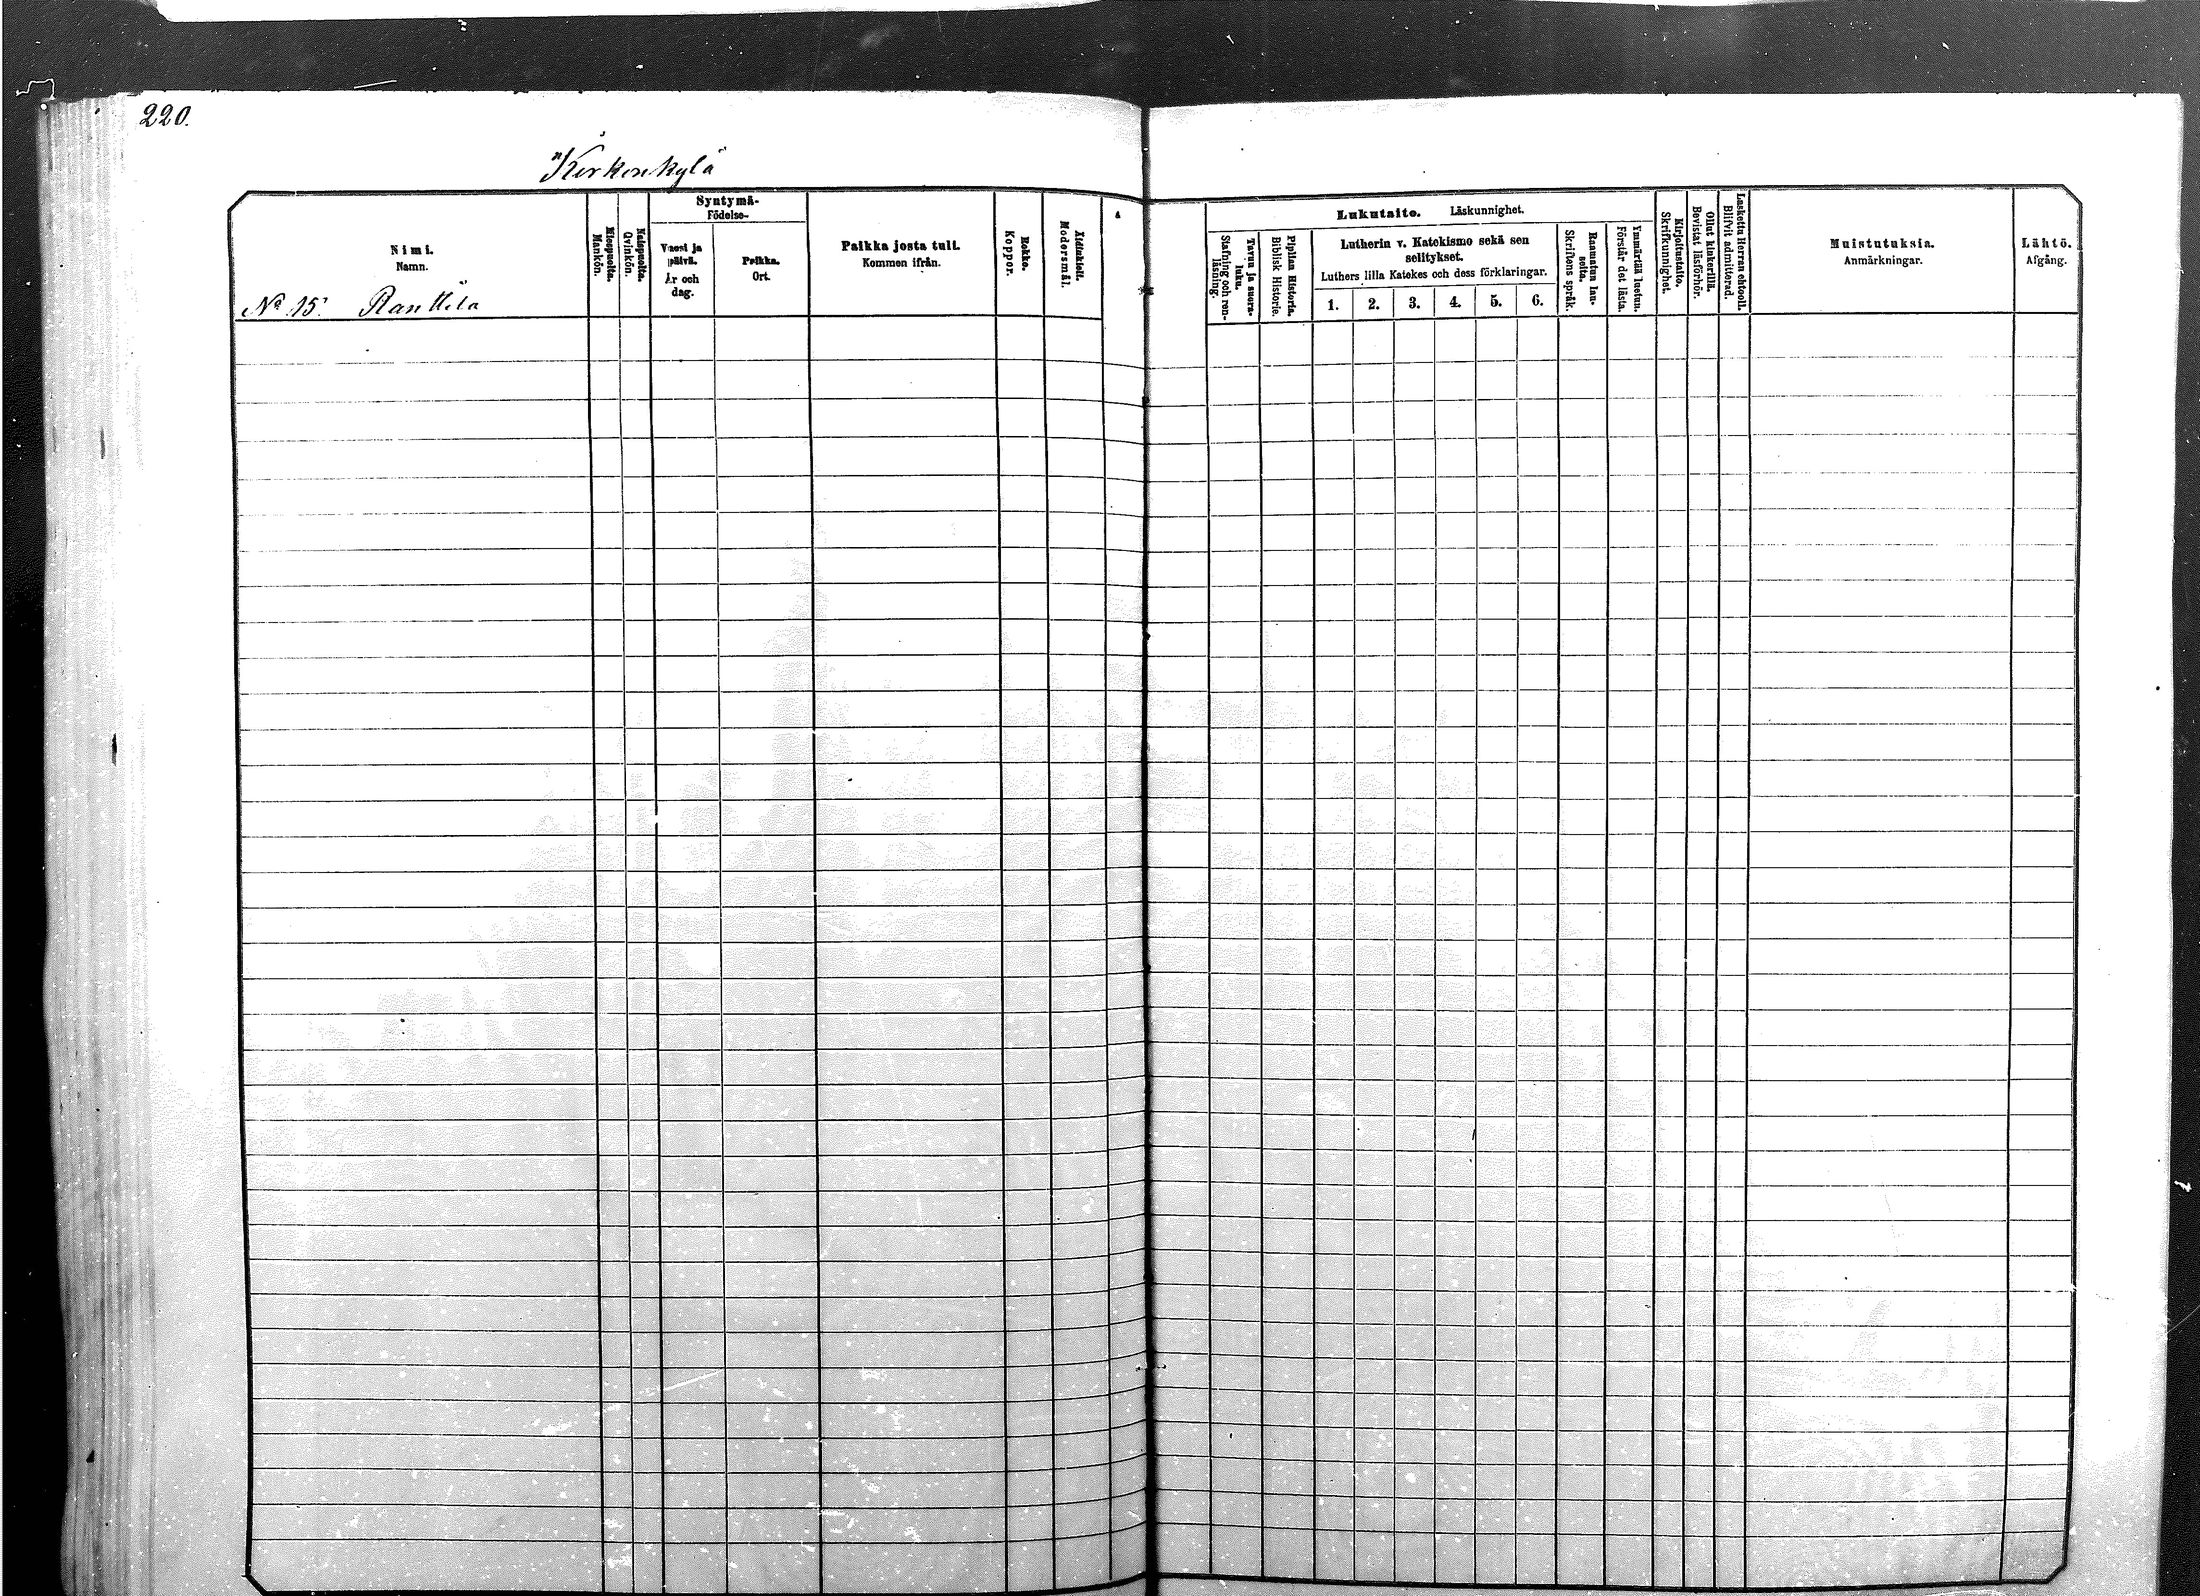 220.
"Kirkonkylä
Nimi.
Namn.
No 15. Ranttila
Miespuolta.
Mankön.
Naispuolta.
Qvinkön.
Syntymä-
Födelse-
Vuosi ja
päivä.
År och
dag.
Paikka.
Ort.
Paikka josta tuli.
Kommen ifrån.
Rokko.
Koppor.
Äidinkieli.
Modersmål.
Lukutaito. Läskunnighet.
Tavuu ja suora-
luku.
Stafning och ren-
läsning.
Piplian Historia.
Biblisk Historie.
Lutherin v. Katekismo sekä sen
selitykset.
Luthers lilla Katekes och dess förklaringar.
1. 2. 3. 4. 5. 6.
Raamatun lau-
seita.
Skriftens språk.
Ymmärtää luetun.
Förstår det lästa.
Kirjoitustaito.
Skrifkunnighet.
Ollut kinkerillä.
Bevistat läsförhör.
Laskettu Herran ehtoolle.
Blifvit admitterad.
Muistutuksia.
Anmärkningar.
Lähtö.
Afgång.